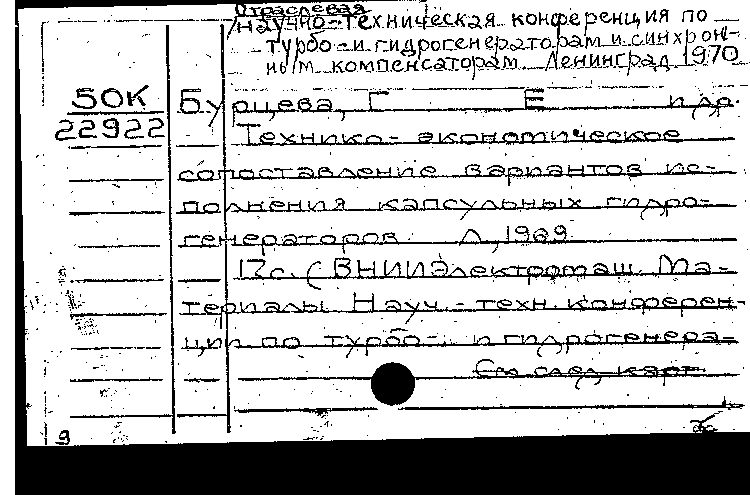 Отраслевая
научно-техническая конференция по
турбо- и гидрогенераторам и синхрон-
ным компенсаторам. Ленинград 1970
50К
22922
Бурцева, Г Е и др.
Технико-экономическое
сопоставление вариантов ис-
полнения капсульных гидро-
генераторов. Л., 1969
12с. (ВНИИЭлектромаш. Ма-
териалы Науч.-техн. конферен-
ции по турбо- и гидрогенера-
См. след. карт.
9